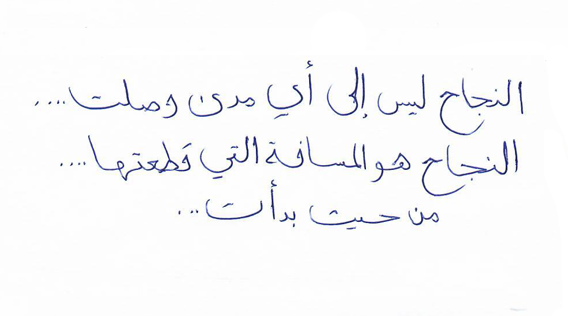 النجاح ليس إلى أي مدى وصلت....
النجاح هو المسافة التي قطعتها....
من حيث بدأت...